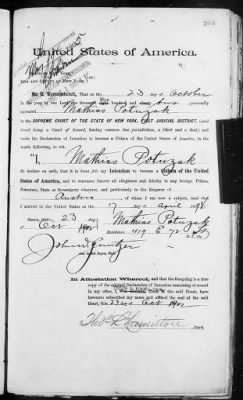 United States of America.
Be it Remembered, That on the 23 day of October
in the year of our Lord one thousand eight hundred and ninety two personally
appeared Mathias Potuzak in the
SUPREME COURT OF THE STATE OF NEW YORK, FIRST JUDICIAL DISTRICT, (the said
Court being a Court of Record, having common law jurisdiction, a Clerk and a Seal) and
made the Declaration of Intention to become a Citizen of the United States of America, in
the words following, to wit:
"I, Mathias Potuzak
do declare on oath, that it is bona fide my Intention to become a Citizen of the United
States of America, and to renounce forever all allegiance and fidelity to any foreign Prince,
Potentate, State or Sovereignty whatever, and particularly to the Emperor of
Austria of whom I am now a subject, and that
I arrived in the United States on the 17 day of April
Sworn, this 23 day
of Oct 1902
Mathias Potuzak
Residence 419 E 72 St
In Attestation Whereof, and that the foregoing is a true
copy of the original Declaration of Intention remaining of record
in my office, I, Clerk of the said Court, have
hereunto subscribed my name and affixed the seal of the said
Court, this 23 day of Oct 1902
Thos L Hamilton Clerk